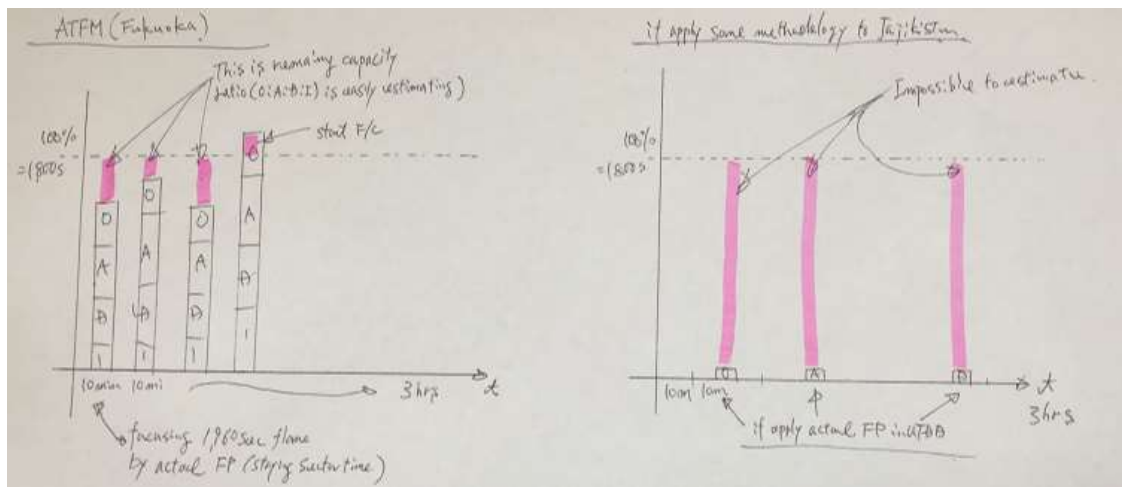 ATFM (Fukuoka)
This is remaing capacity
ratio (O:A:D:I) is easily estimating)
start F/C
100%
=1800s
O
A
D
I
O
A
D
I
O
A
D
I
O
A
A
I
10min 10mi
3hrs t
focusing sec flame
by actual FP (staying sector time)
if apply same methodology to Tajikistan
Impossible to estimate.
100%
=1800s
O
A
D
10m 10m
t
3hrs
if apply actual FP in